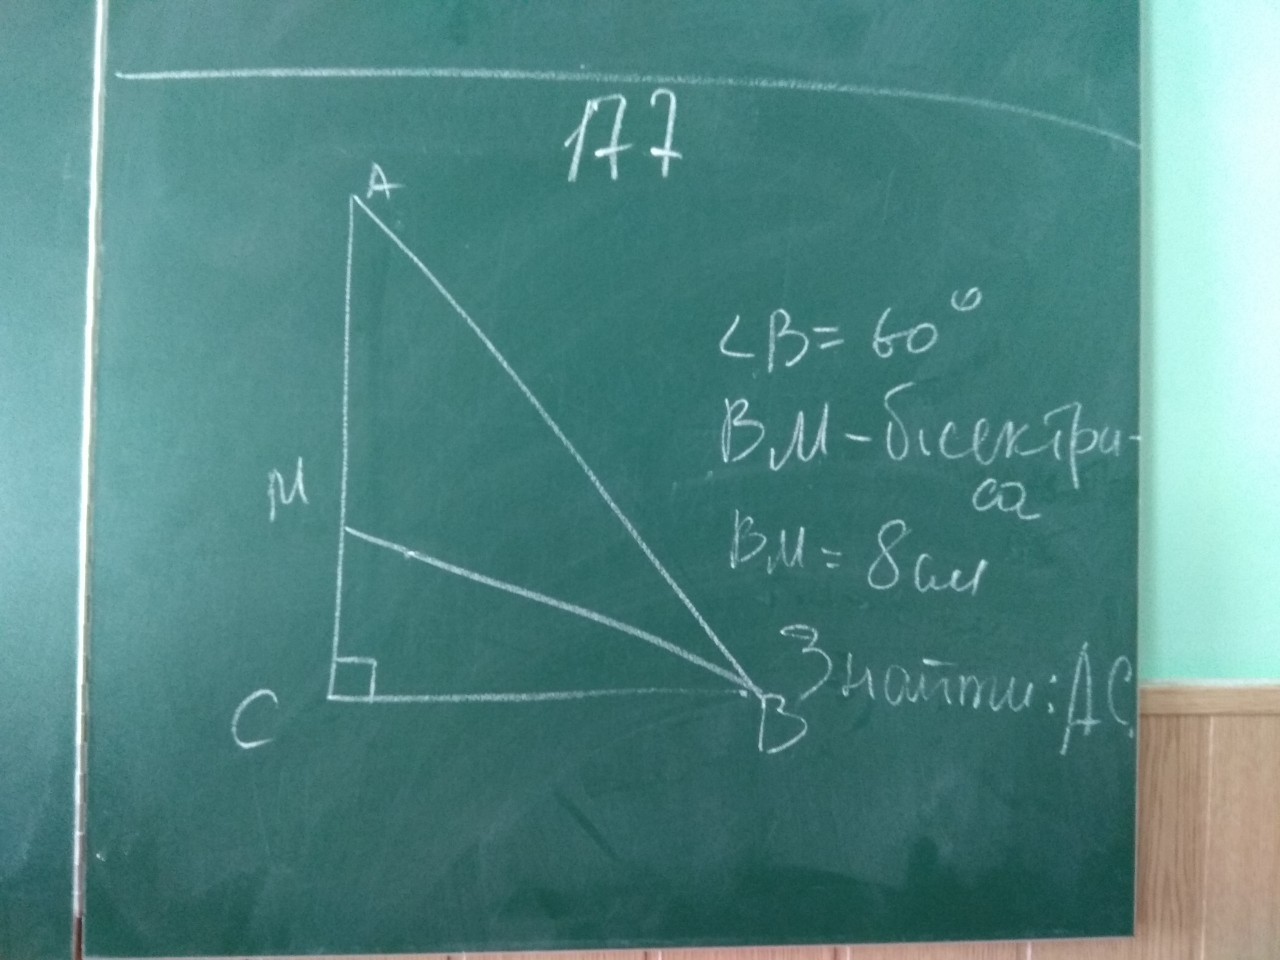 177
A
∠B = 60°
BM - бісектри-
са
M
BM = 8 см
Знайти: AC
C
B